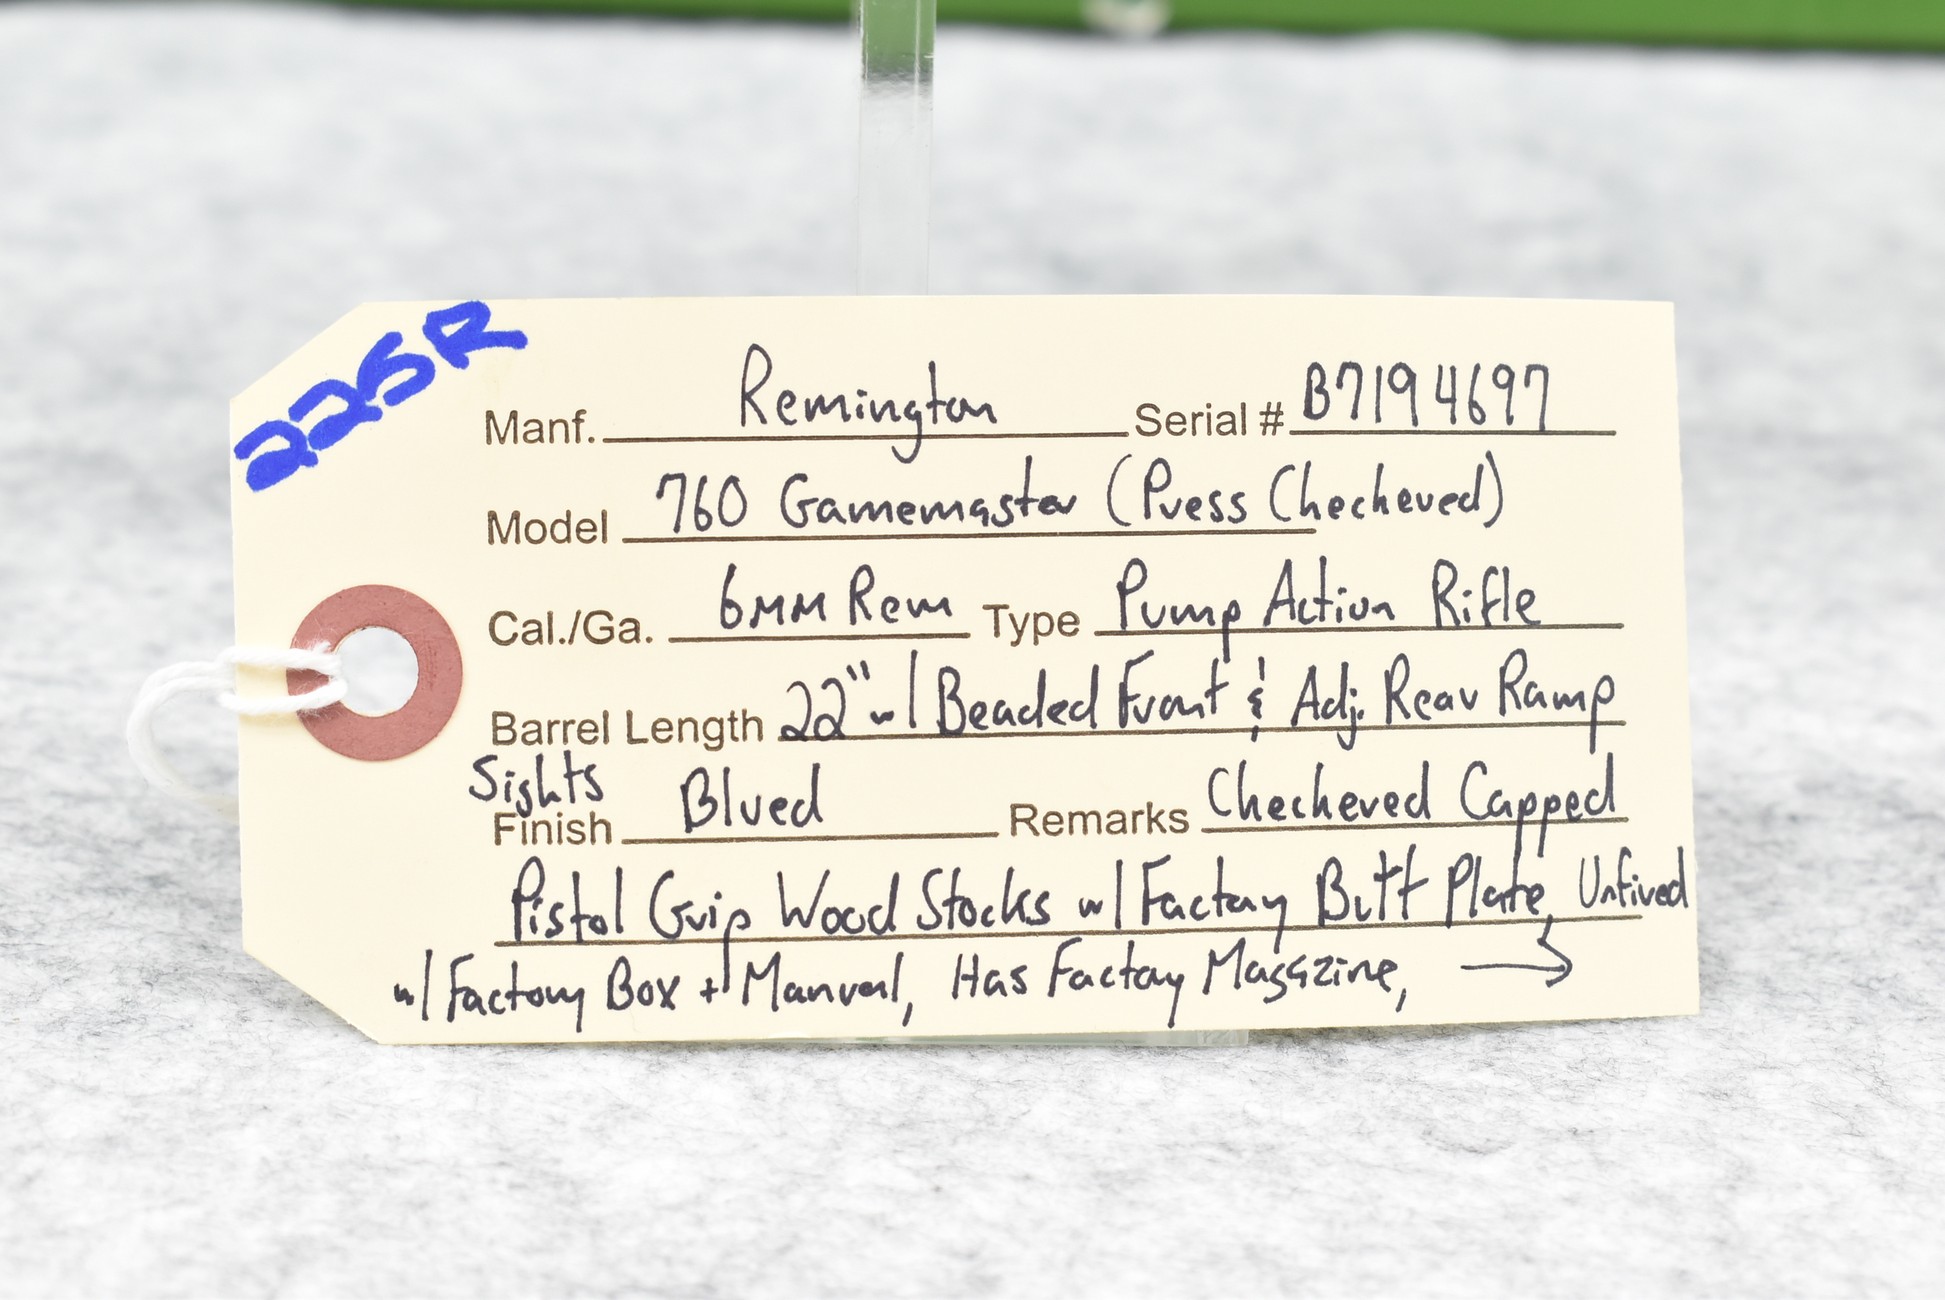 225R
Manf. Remington Serial # B7194697
Model 760 Gamemaster (Press Checkered)
Cal./Ga. 6MM Rem Type Pump Action Rifle
Barrel Length 22" w/ Beaded Front & Adj. Rear Ramp
Sights
Finish Blued Remarks Checkered Capped
Pistol Grip Wood Stocks w/ Factory Butt Plate, Unfired
w/ Factory Box + Manual, Has Factory Magazine, →